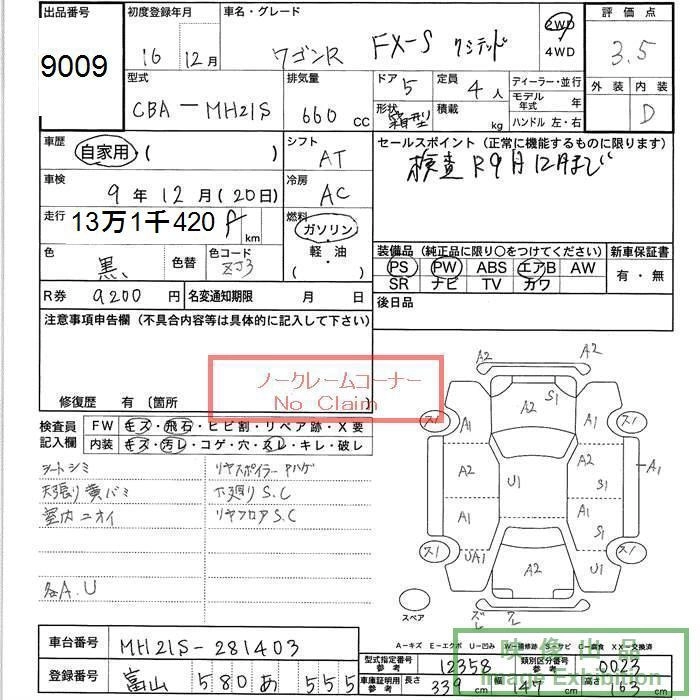 出品番号 初度登録年月 車名・グレード 評価点
9009 16年 12月 ワゴンR FX-S リミテッド 2WD 4WD 3.5
型式 排気量 ドア 5 定員 4人 ディーラー・並行 外装 内装
CBA-MH21S 660cc 形状 箱型 積載 kg モデル年式 年 D
ハンドル 左・右
車歴 自家用・( ) シフト AT セールスポイント (正常に機能するものに限ります)
車検 9年 12月 (20日) 冷房 AC 検査 R9月12月まで
走行 13万1千420 km 燃料 ガソリン・軽・油・( )
色 黒 色替 色コード ZJ3 装備品 (純正品に限り〇をつけてください) 新車保証書
PS PW ABS エアB AW 有・無
SR ナビ TV カワ
R券 9200円 名変通知期限 月 日 後日品
注意事項申告欄 (不具合内容等は具体的に記入して下さい)
ノークレームコーナー
No Claim
修復歴 有 〔箇所
検査員記入欄 FW キズ・飛石・ヒビ割・リペア跡・X要
内装 キズ・汚レ・コゲ・穴・スレ・キレ・破レ
シートシミ リヤスポイラー ハゲ
天張り黄バミ 下廻りS.C
室内ニオイ リヤフロアS.C
各A.U
A2 A2
S1
ス1 A1 A2 A1 ス1
A2 U1 A2 A1
A1 A1 S1 S1
ス1 UA1 A2 U1 ス1
スペア
A-キズ E-エクボ U-凹み W-補修跡 S-サビ C-腐食 XX-交換済
車台番号 MH21S-281403 型式指定番号 参考 12358 類別区分番号 参考 0023
登録番号 富山 580 あ 555 車庫証明用 参考 長さ 339cm 幅 147cm 高さ 163cm
映像出品
Image Exhibition